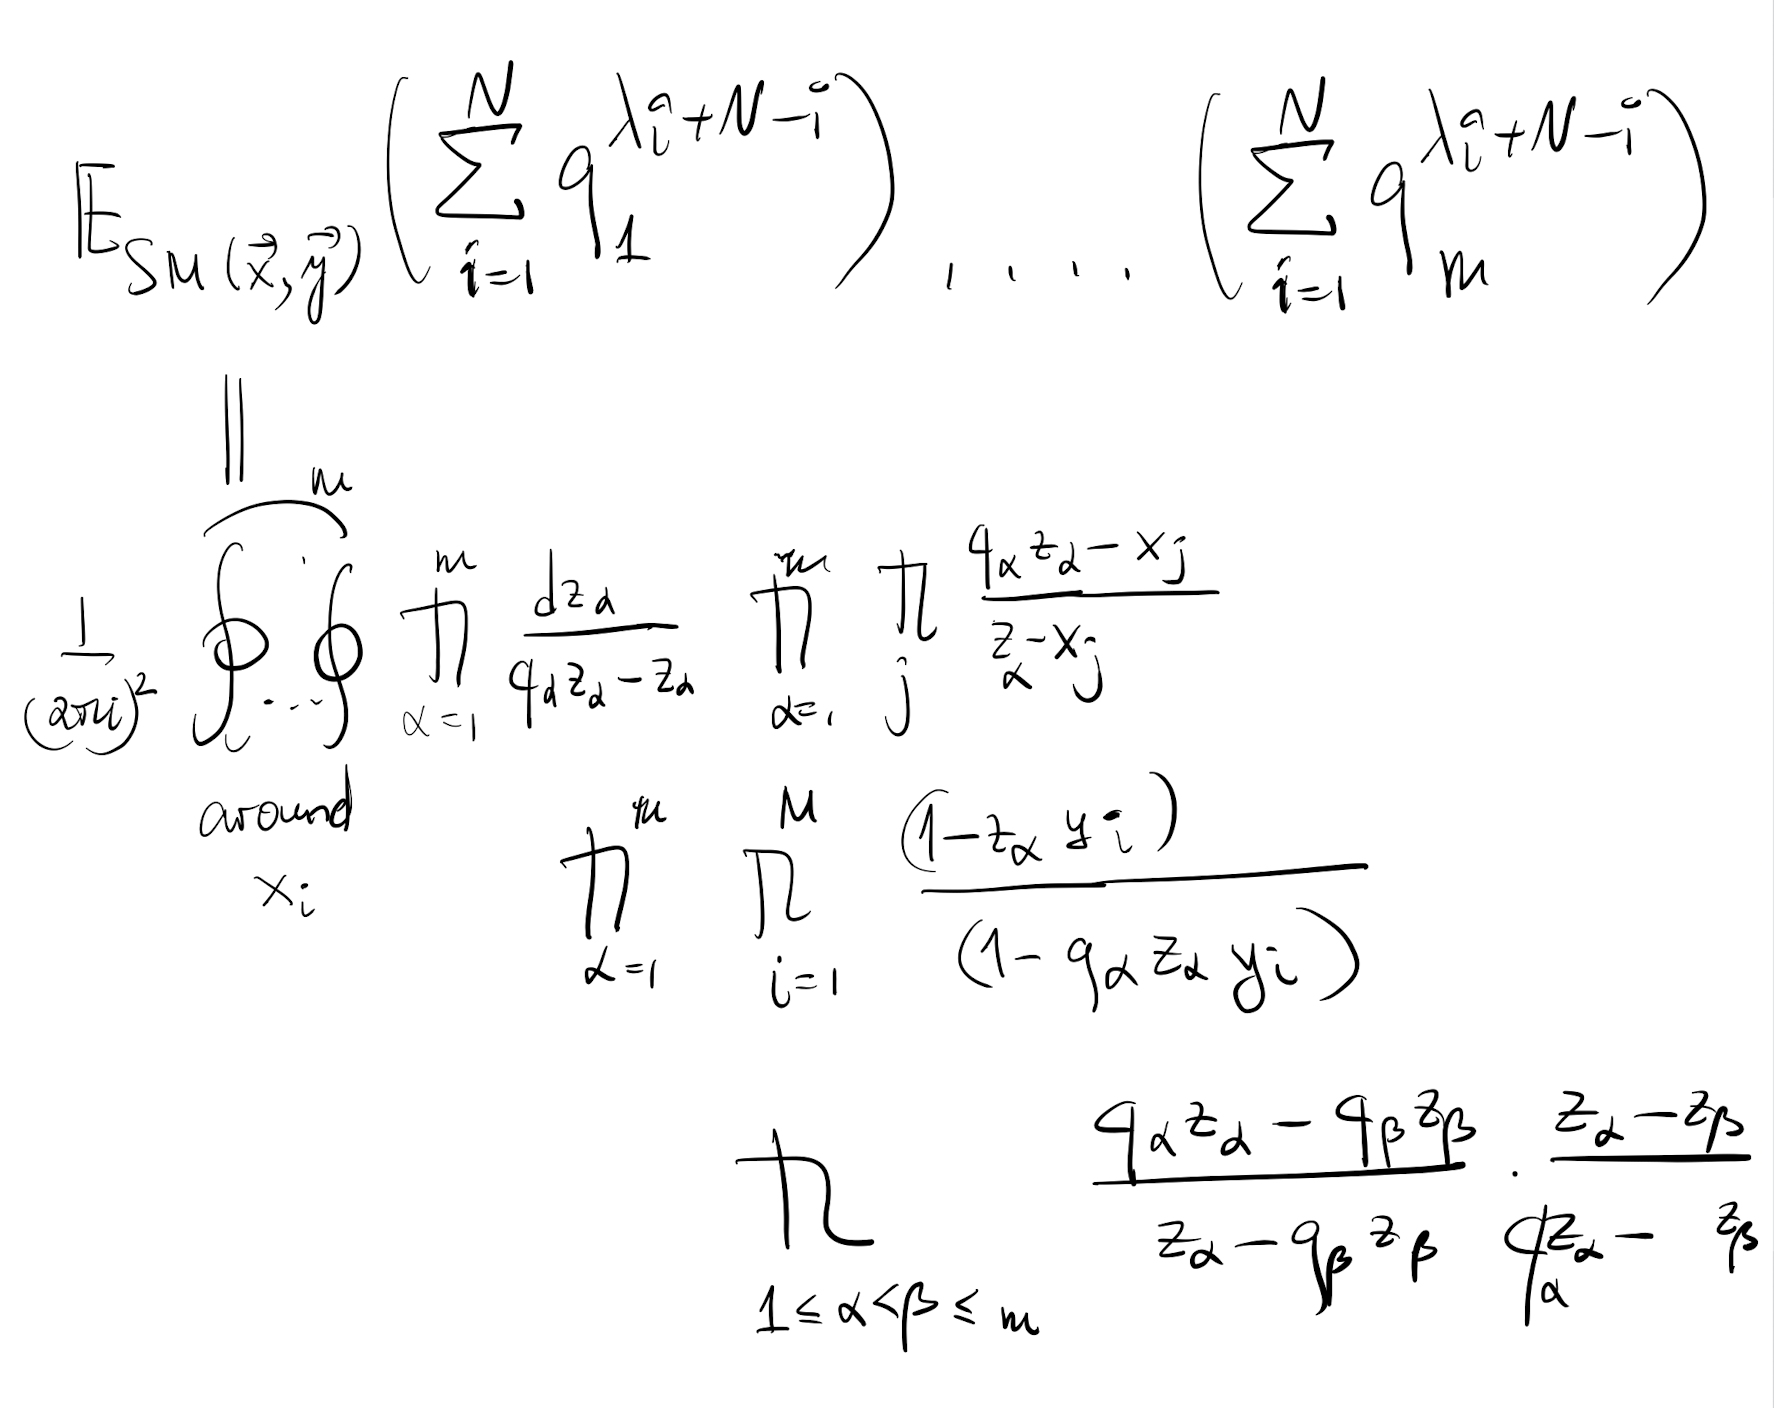 𝔼_{SM(\vec{x},\vec{y})} ( \sum_{i=1}^{N} q_1^{λ_i^a+N-i} ) .... ( \sum_{i=1}^{N} q_m^{λ_i^a+N-i} )
||
\frac{1}{(2πi)^2} \overbrace{∮...∮}^{m} \prod_{α=1}^{m} \frac{dz_α}{q_α z_α - z_α} \prod_{α=1}^{m} \prod_j \frac{q_α z_α - x_j}{z_α - x_j}
around
x_i
\prod_{α=1}^{m} \prod_{i=1}^{M} \frac{(1 - z_α y_i)}{(1 - q_α z_α y_i)}
\prod_{1≤α<β≤m} \frac{q_α z_α - q_β z_β}{z_α - q_β z_β} · \frac{z_α - z_β}{q_α z_α - z_β}